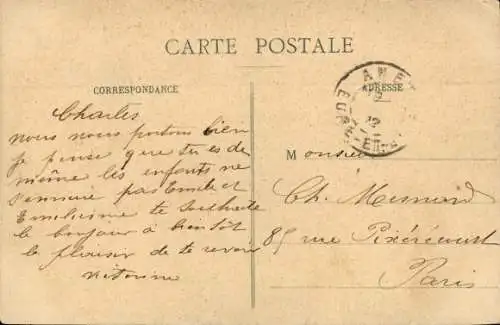 CARTE POSTALE
CORRESPONDANCE
ADRESSE
ANET
EURE
Charles
nous nous portons bien
je pense que tu es de
même les enfants ne
pas Emile et
te souhaite
le bonjour à bientôt
le plaisir de te revoir
Victorine
Monsieur
Ch. Mesnard
85 rue Pixérécourt
Paris